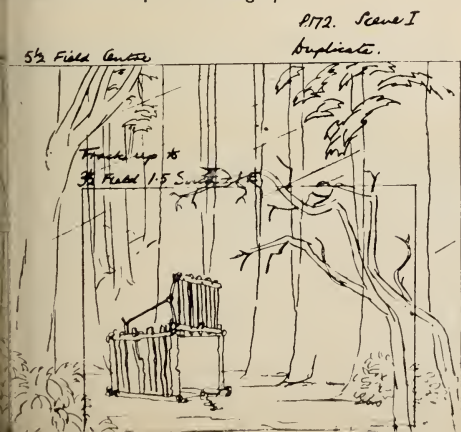 P.172. Scene I
Duplicate.
5½ Field Centre
Track up to
3½ Field 1.5 South